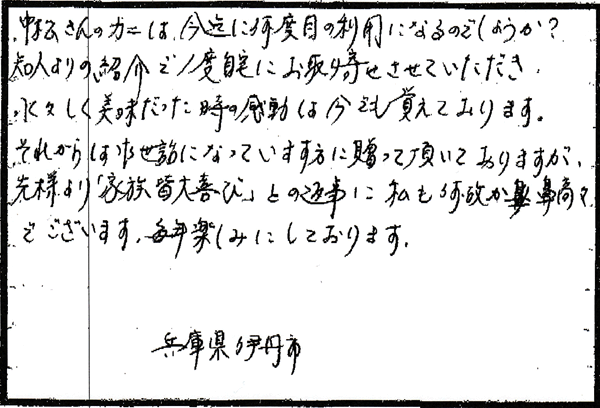 中松さんのカニは、今迄に何度目の利用になるのでしょうか?
知人よりの紹介で1度自宅にお取り寄せさせていただき、
久々しく美味だった時の感動は今でも覚えております。
それからはお世話になっています方に贈って頂いておりますが、
先様より「家族皆大喜び」との返事に私も何故か鼻高々
でございます。毎年楽しみにしております。
兵庫県伊丹市